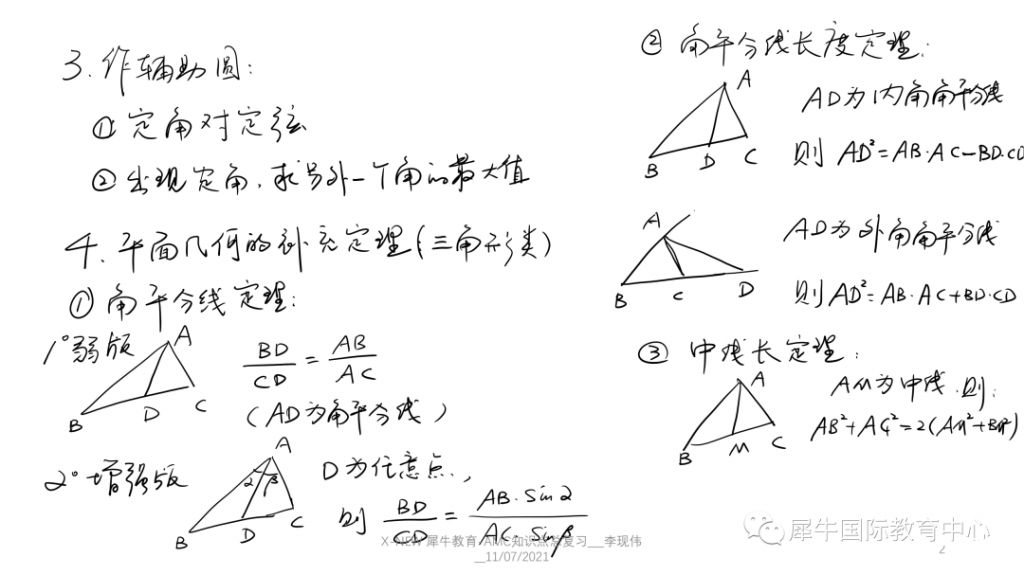 3. 作辅助圆:
① 定角对定弦
② 出现定角. 求另外一个角的最大值
4. 平面几何的补充定理(三角形类)
① 角平分线定理:
1° 弱版
A
B
D
C
BD/CD = AB/AC
(AD为角平分线)
2° 增强版
A
α β
B
D
C
D为任意点,
则 BD/CD = AB·sinα/AC·sinβ
② 角平分线长度定理:
A
B
D
C
AD为内角角平分线
则 AD²=AB·AC-BD·CD
A
B
C
D
AD为外角角平分线
则AD²=-AB·AC+BD·CD
③ 中线长定理:
A
B
M
C
AM为中线.则:
AB²+AC²=2(AM²+BM²)
犀牛教育-AMC知识点总复习__李现伟
__11/07/2021
犀牛国际教育中心
2